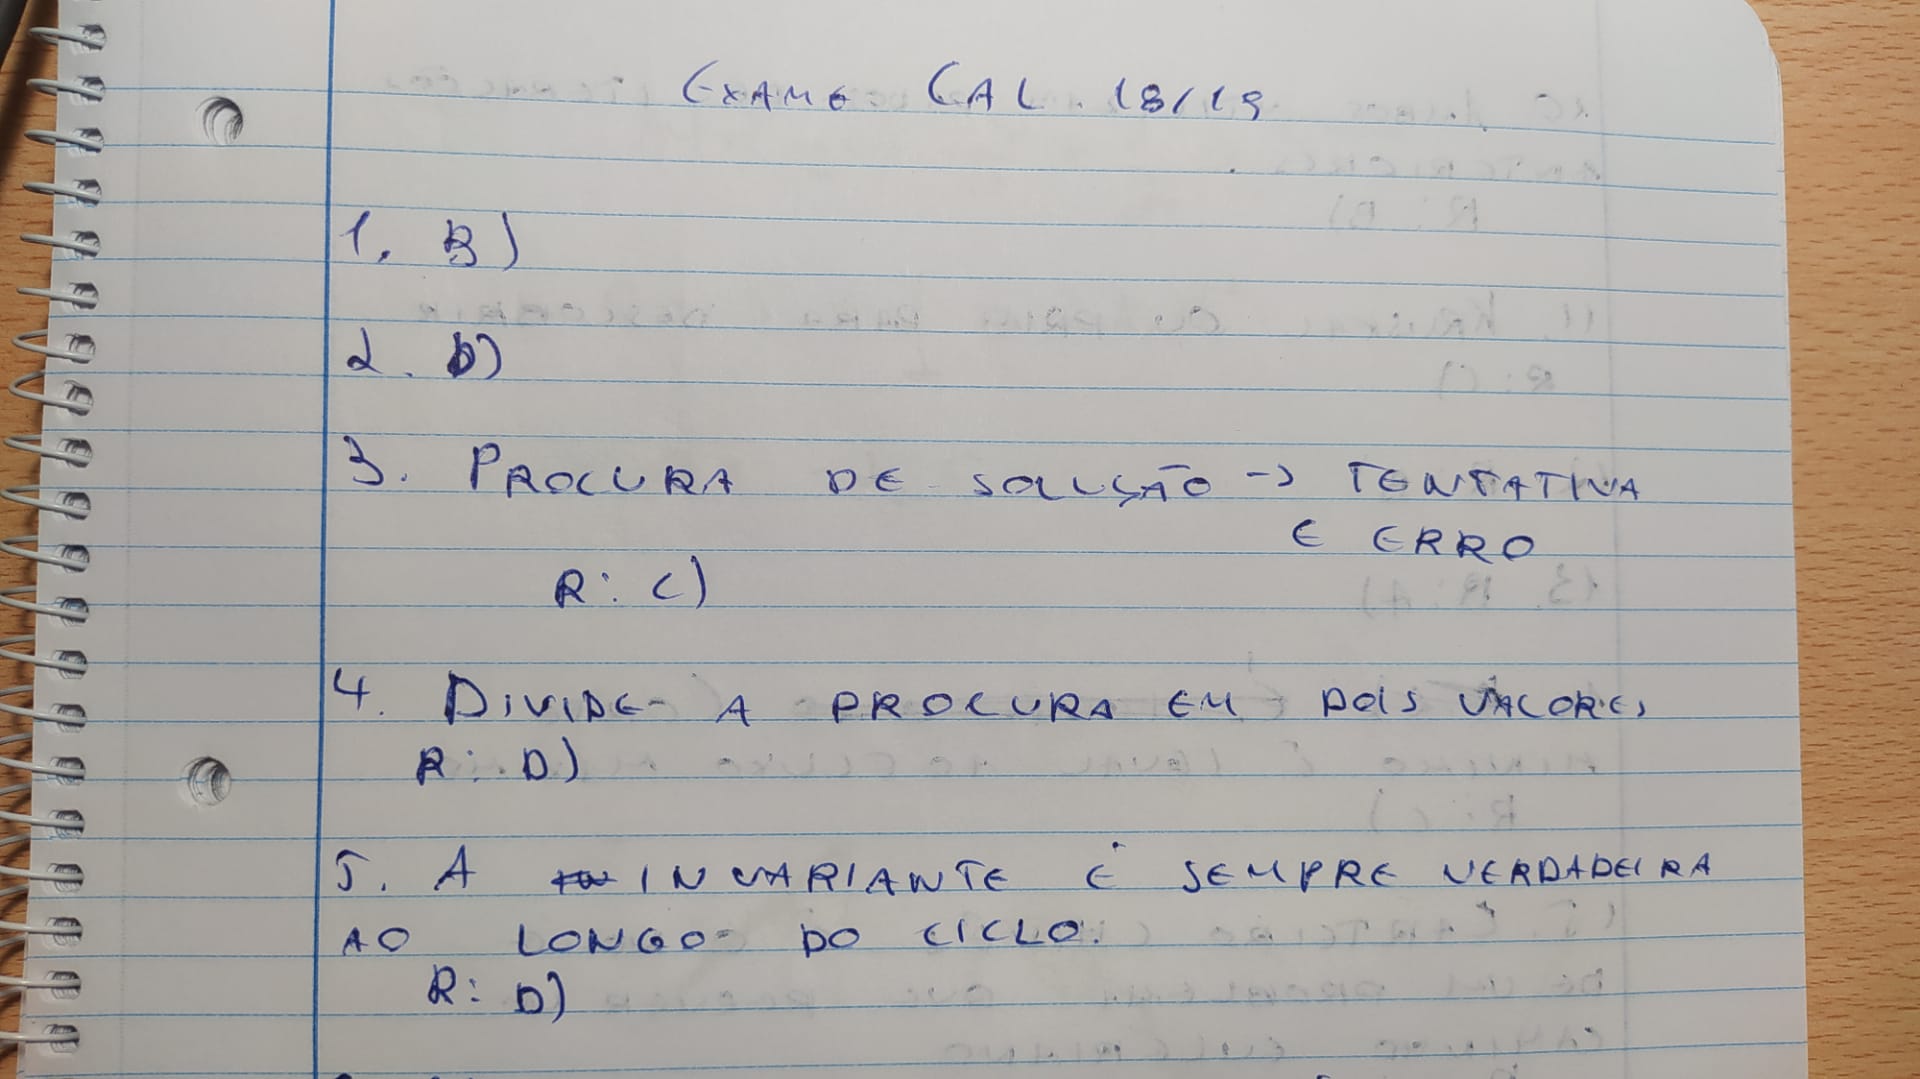 EXAME CAL 18/19
1. B)
2. D)
3. PROCURA DE SOLUÇÃO -> TENTATIVA
E ERRO
R: C)
4. DIVIDE A PROCURA EM DOIS VALORES
R: D)
5. A INVARIANTE É SEMPRE VERDADEIRA
AO LONGO DO CICLO.
R: D)